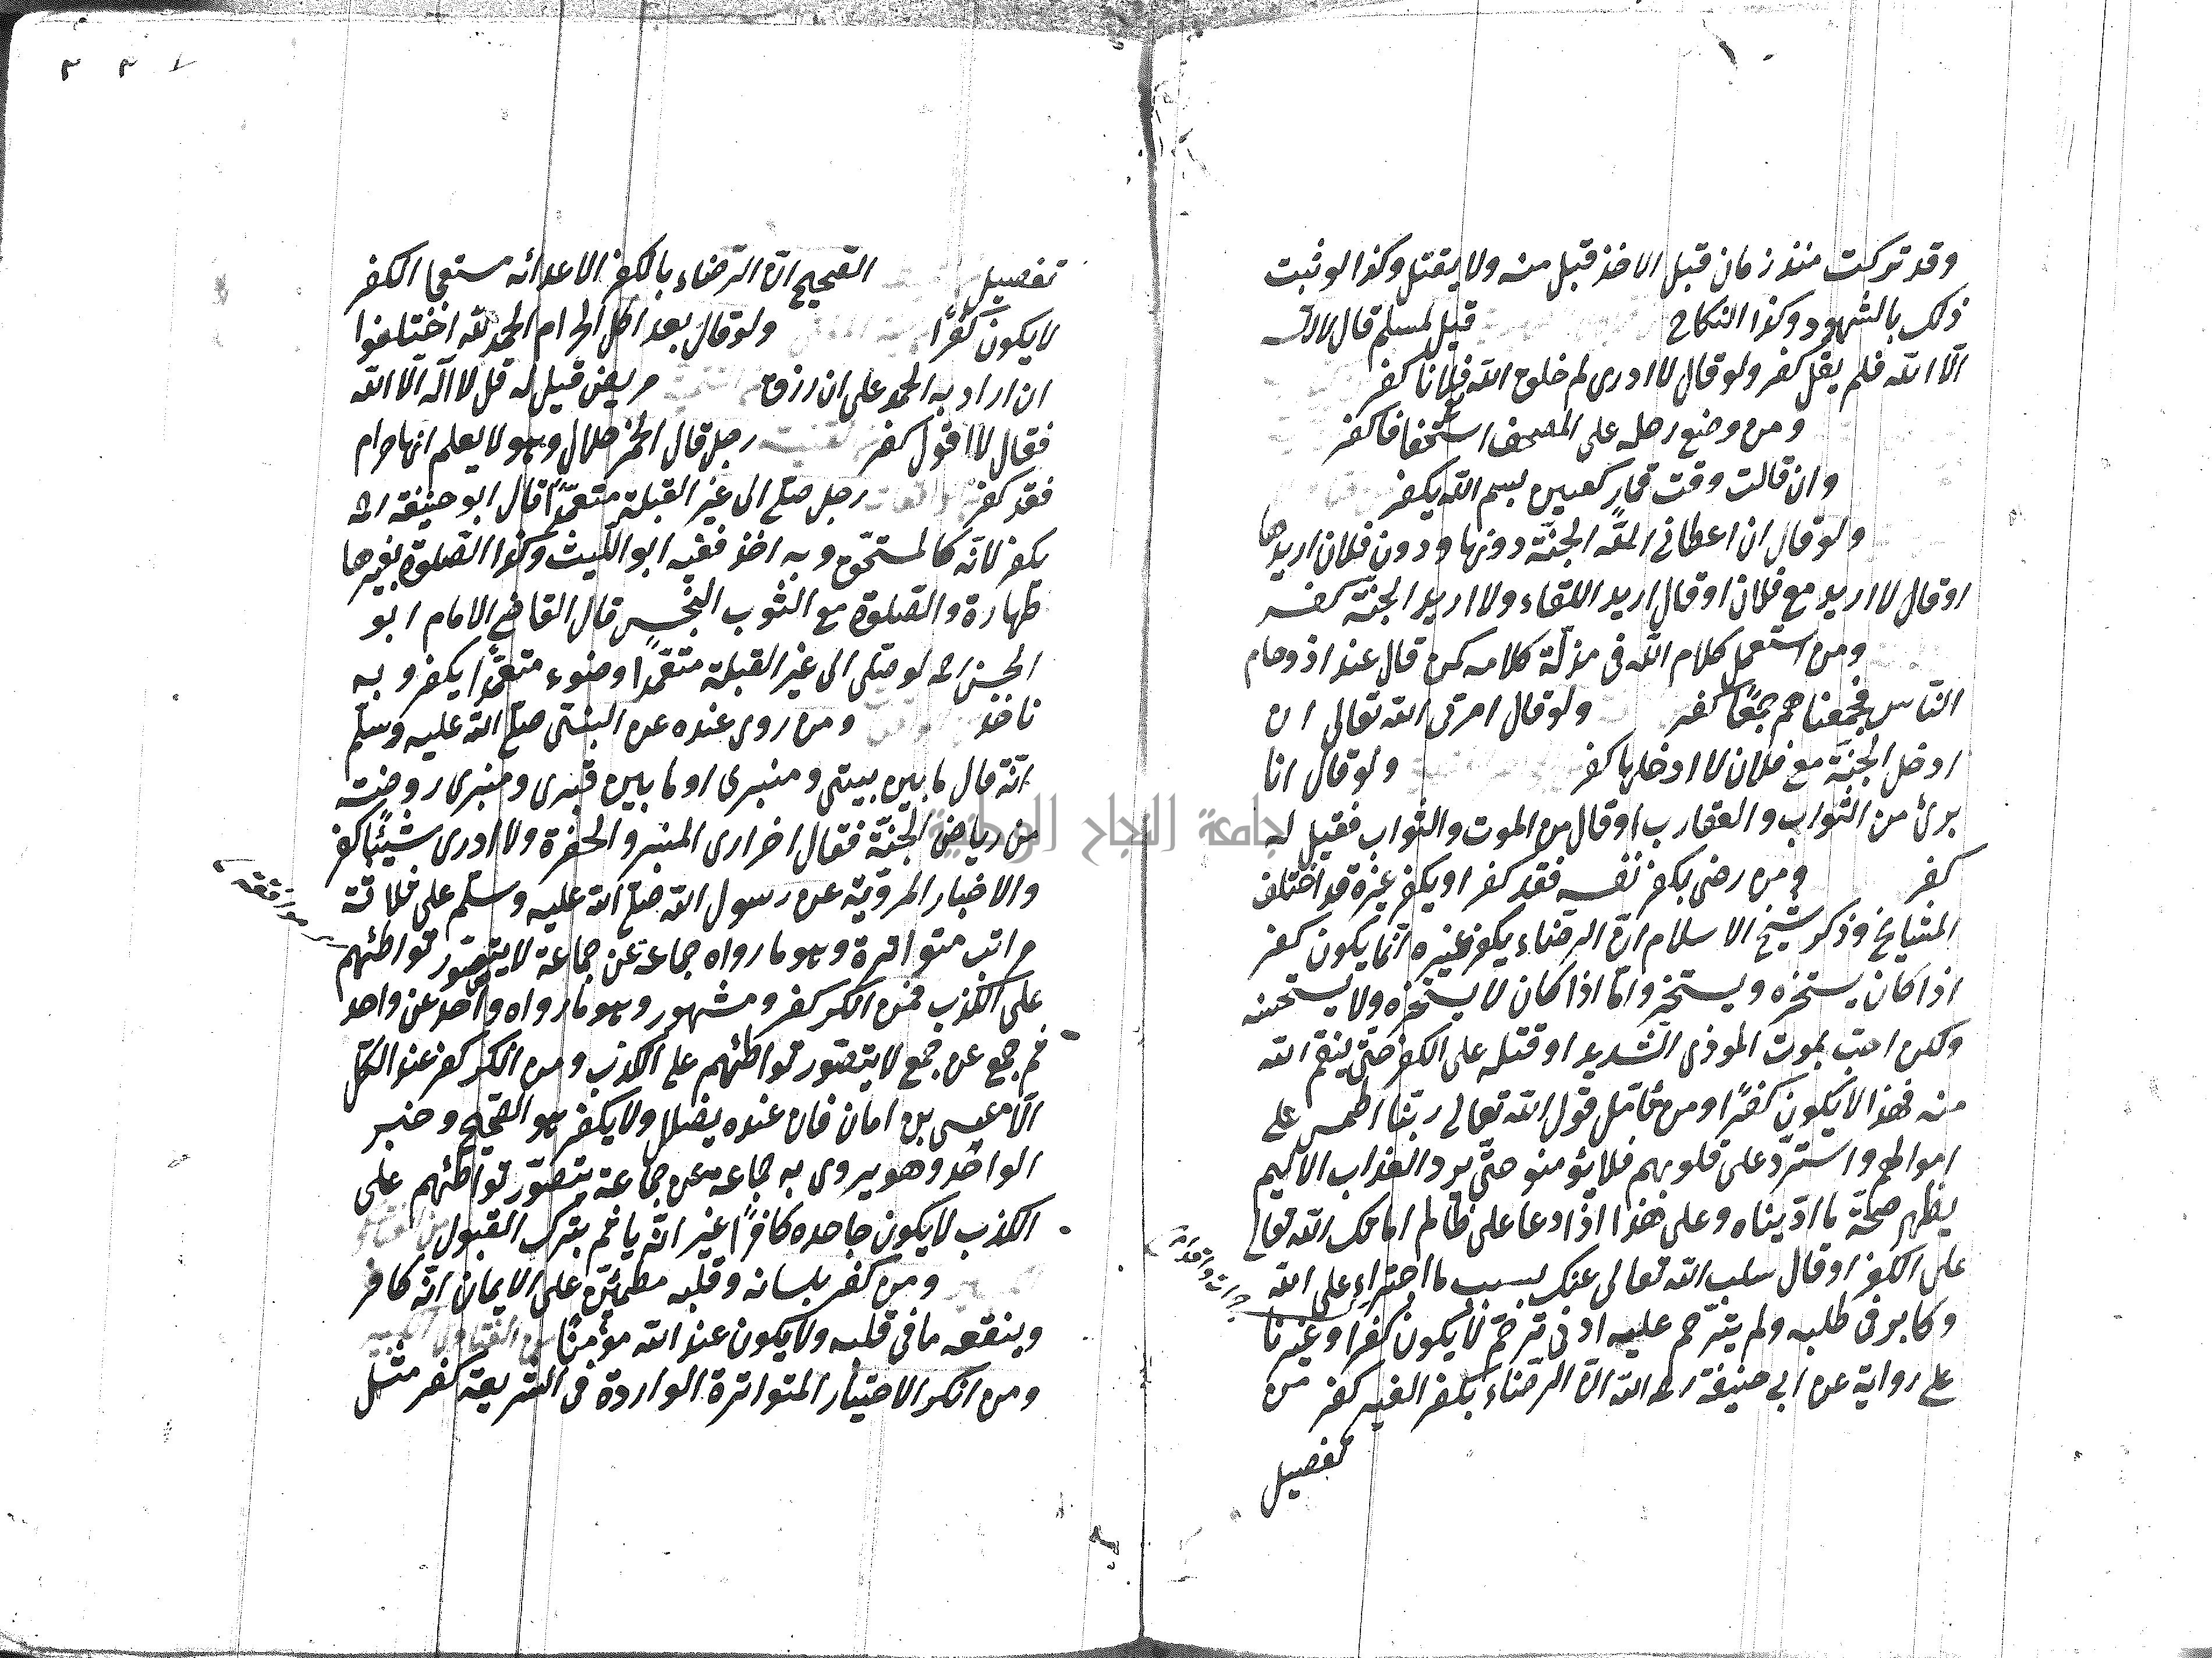 وقد تركت منذ زمان قبل الاخذ قبل منه ولا يقتل وكذا لو ثبت
ذلك بالشهود وكذا النكاح قيل لمسلم قال لا اله
الّا الله فلم يقل كفر ولو قال لا ادرى لم خلق الله فلانا كفر
ومن وضع رجله على المصحف استخفافا كفر
وان قالت وقت قمار كعبين بسم الله يكفر
ولو قال ان اعطانى الله الجنّة دونها ودون فلان اريدها
او قال لا اريد مع فلان او قال اريد اللقاء ولا اريد الجنّة كفر
ومن استعمل كلام الله فى مزلّة كلامه كمن قال عند اذدحام
النّاس فجمعناهم جمعًا كفر ولو قال امرنى الله تعالى ان
ادخل الجنّة مع فلان لا ادخلها كفر ولو قال انا
برئ من الثواب والعقاب او قال من الموت والثواب فقيل له
كفر ومن رضى بكفر نفسه فقد كفر او بكفر غيره قد اختلف
المشايخ وذكر شيخ الاسلام انّ الرضاء بكفر غيره انّما يكون كفر
اذا كان يستخره ويستخر وامّا اذا كان لا يستخره ولا يستحسنه
ولكن احبّ بموت الموذى الشديد او قتله على الكفر حتّى ينتقم الله
منه فهذا لا يكون كفرًا ومن تأمّل قول الله تعالى ربّنا اطمس على
اموالهم واشترّد على قلوبهم فلا يؤمنو حتّى يرد العذاب الاليم
يظهر صحّة ما ادّيناه وعلى هذا اذا دعا على ظالم اماتك الله تعالى
على الكفر او قال سلب الله تعالى عنك بسبب ما اجتراء على الله
وكابر فى ظلمه ولم يترّحم عليه ادنى ترحّم لا يكون كفرا وغيرنا
على رواية عن ابى حنيفة رحمه الله انّ الرّضاء بكفر الغير كفر من
تفصيل
جامعة النجاح الوطنية
تفصيل الصّحيح انّ الرّضاء بالكفر الاعدائه مستعجا الكفر
لا يكون كفرًا ولو قال بعد اكل الحرام الحمد لله اختلفوا
ان اراد به الحمد على ان رزق مريض قيل له قل لا آله الّا الله
فقال لا اقول كفر رجل قال الخمر حلال وهو لا يعلم انها حرام
فقد كفر رجل صلّى الى غير القبلة متعمّدًا قال ابو حنيفة رحمه
يكفر لانّه كالمستخّف وبه اخذ فقيه ابو اللّيث وكذا الصّلوة بغيرها
طهارة والصّلوة مع الثوب النّجس قال القاضى الامام ابو
الحسن رحمه لو صلّى الى غير القبلة متعّمدًا وضوء متعمّدًا يكفر وبه
ناخذ ومن روى عنده عن النبىّ صلّى الله عليه وسلّم
انّه قال ما بين بيتى ومنبرى او ما بين قبرى ومنبرى روضة
من رياض الجنّة فقال اخر ارى المنبر والحفرة ولا ادرى شيئًا كفر
والاخبار المرويّة عن رسول الله صلّى الله عليه وسلّم على ثلاثة
مراتب متواترة وهو ما رواه جماعة عن جماعة لا يتصّور تواطئهم
موافقته
على الكذب فمن انكر كفر ومشهور وهو ما رواه واحد عن واحد
ثم جمع عن جمع لا يتصّور تواطئهم على الكذب ومن انكر كفر عند الكلّ
الّا عيسى بن امان فان عنده يضلل ولا يكفر هو الصّحيح وخبر
الواحد وهو يروى به جماعة عن جماعة يتصوّر تواطئهم على
الكذب لا يكون جاحده كافرًا غير انّه ياثم بترك القبول
ومن كفر بلسانه وقلبه مطمئنّ على الايمان انّه كافر
وينفعه ما فى قلبه ولا يكون عند الله مؤمنًا
ومن انكر الاخبار المتواترة الواردة فى الشريعة كفر مثل